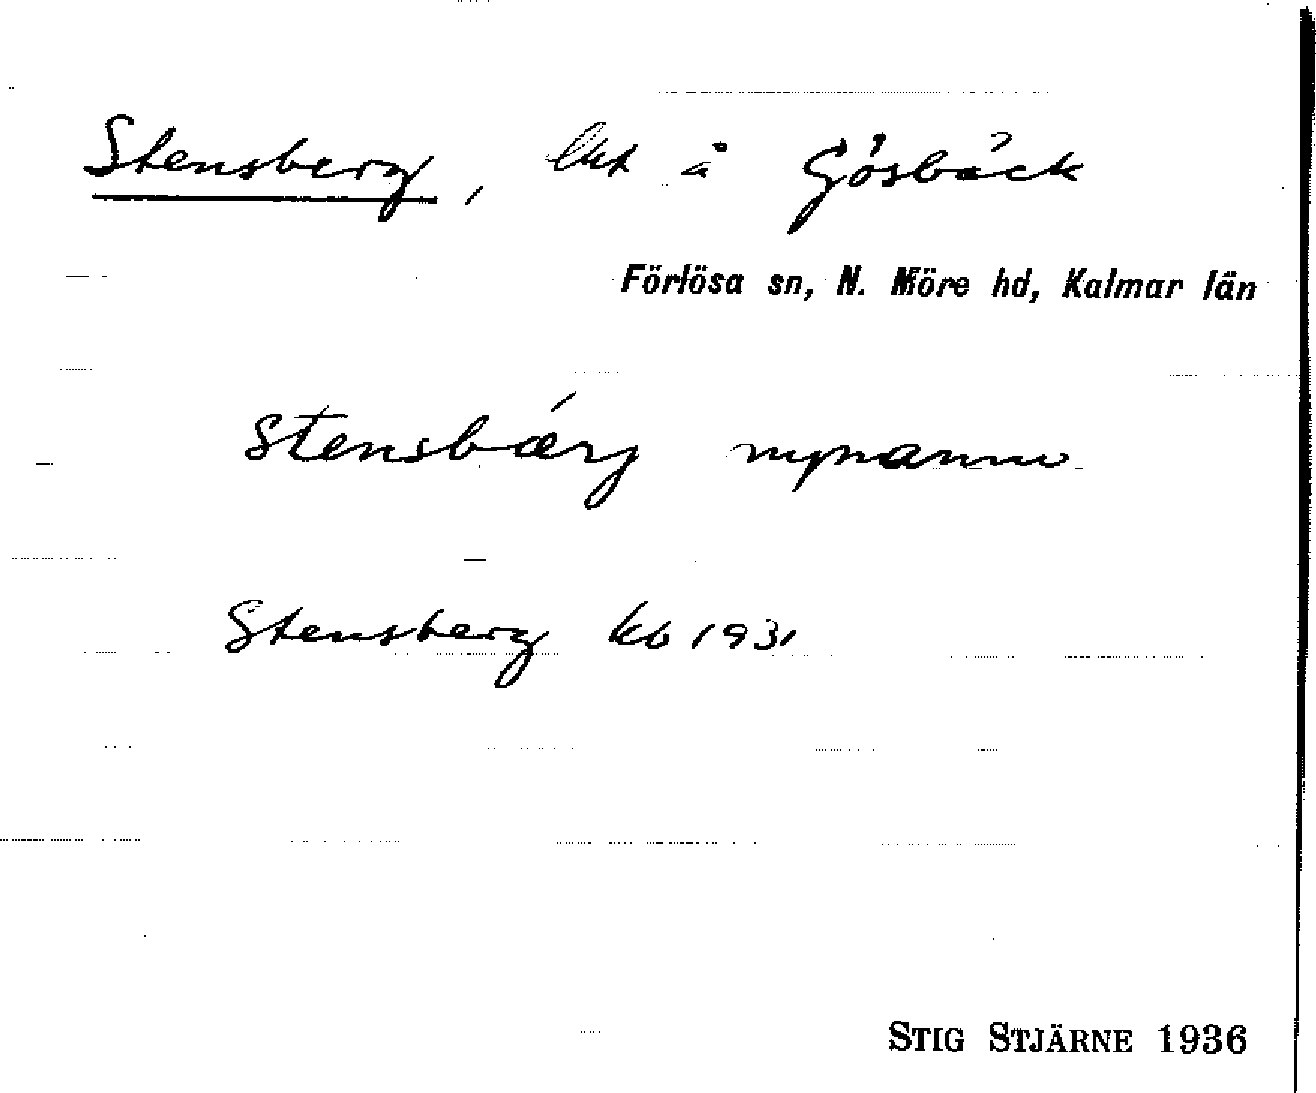 Stensberg, lht å Gösbäck
Förlösa sn, N. Möre hd, Kalmar län
stensbærj mynamn
Stensberg kb 1931
STIG STJÄRNE 1936